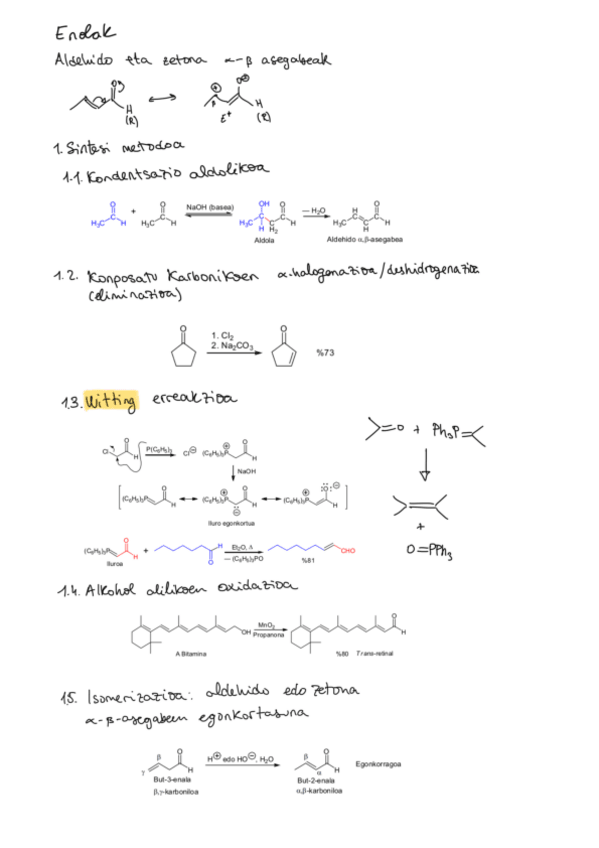 Enolak
Aldehido eta zetona α-β asegabeak
H
(R)
E⁺
H
(R)
1. Sintesi metodoa
1.1. Kondentsazio aldolikoa
H₃C H + H₃C H NaOH (basea) OH H₃C C C H H H₂ — H₂O H₃C H C C H H
Aldola Aldehido α,β-asegabea
1.2. Konposatu Karbonikoen α-halogenazioa/deshidrogenazioa
(eliminazioa)
O 1. Cl₂ O
2. Na₂CO₃ %73
1.3. Witting erreakzioa
=O + Ph₃P=
Cl H P(C₆H₅)₃ Cl⊖ (C₆H₅)₃P⊕ H
NaOH
(C₆H₅)₃P H (C₆H₅)₃P H (C₆H₅)₃P H
Iluro egonkortua
+
O=PPh₃
(C₆H₅)₃P H + H O Et₂O, Δ CHO
Iluroa — (C₆H₅)₃PO %81
1.4. Alkohol alilikoen oxidazioa
OH MnO₂ O H
Propanona
A Bitamina %80 Trans-retinal
1.5. Isomerizazioa: aldehido edo zetona
α-β-asegabeen egonkortasuna
γ β O H H⊕ edo HO⊖, H₂O β α O H Egonkorragoa
But-3-enala But-2-enala
β,γ-karboniloa α,β-karboniloa